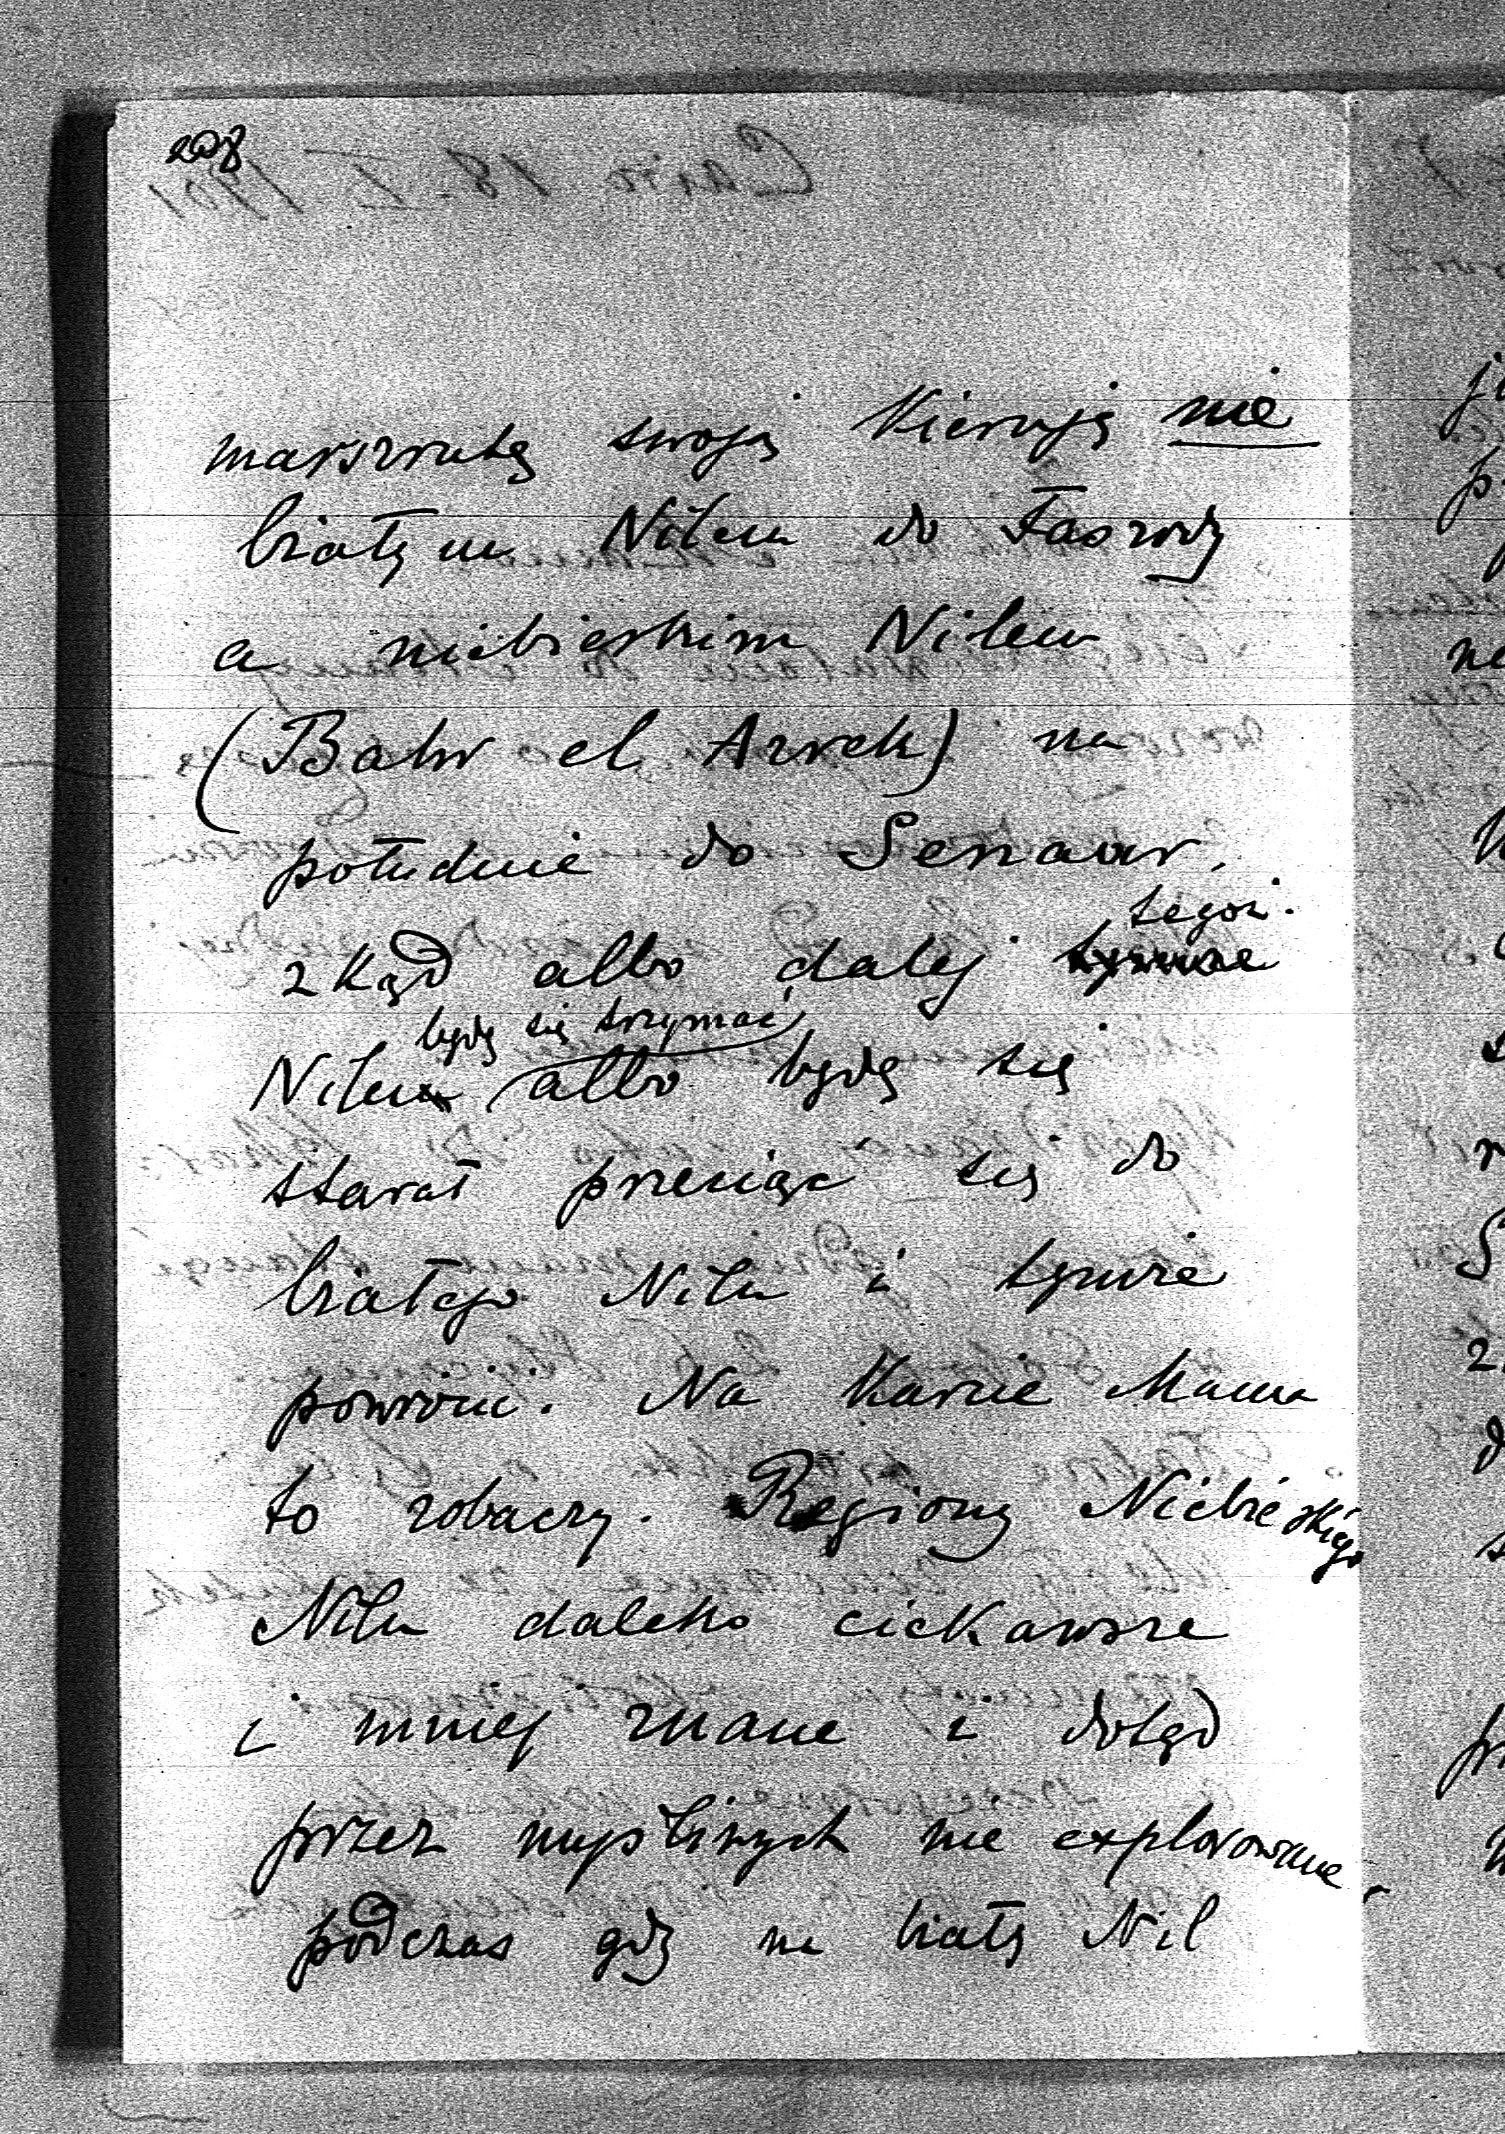 208
marszrutę swoją kieruję nie
białym Nilem do Faszody
a niebieskim Nilem
(Bahr el Azrek) na
południe do Senaar,
zkąd albo dalej tegoż
Nilu będę się trzymać, albo będę się
starał przeciąć się do
białego Nilu i tymże
powrócić. Na karcie Mama
to zobaczy. Regiony Niebieskiego
Nilu daleko ciekawsze
i mniej znane i dotąd
przez myśliwych nie explorowane,
podczas gdy na biały Nil